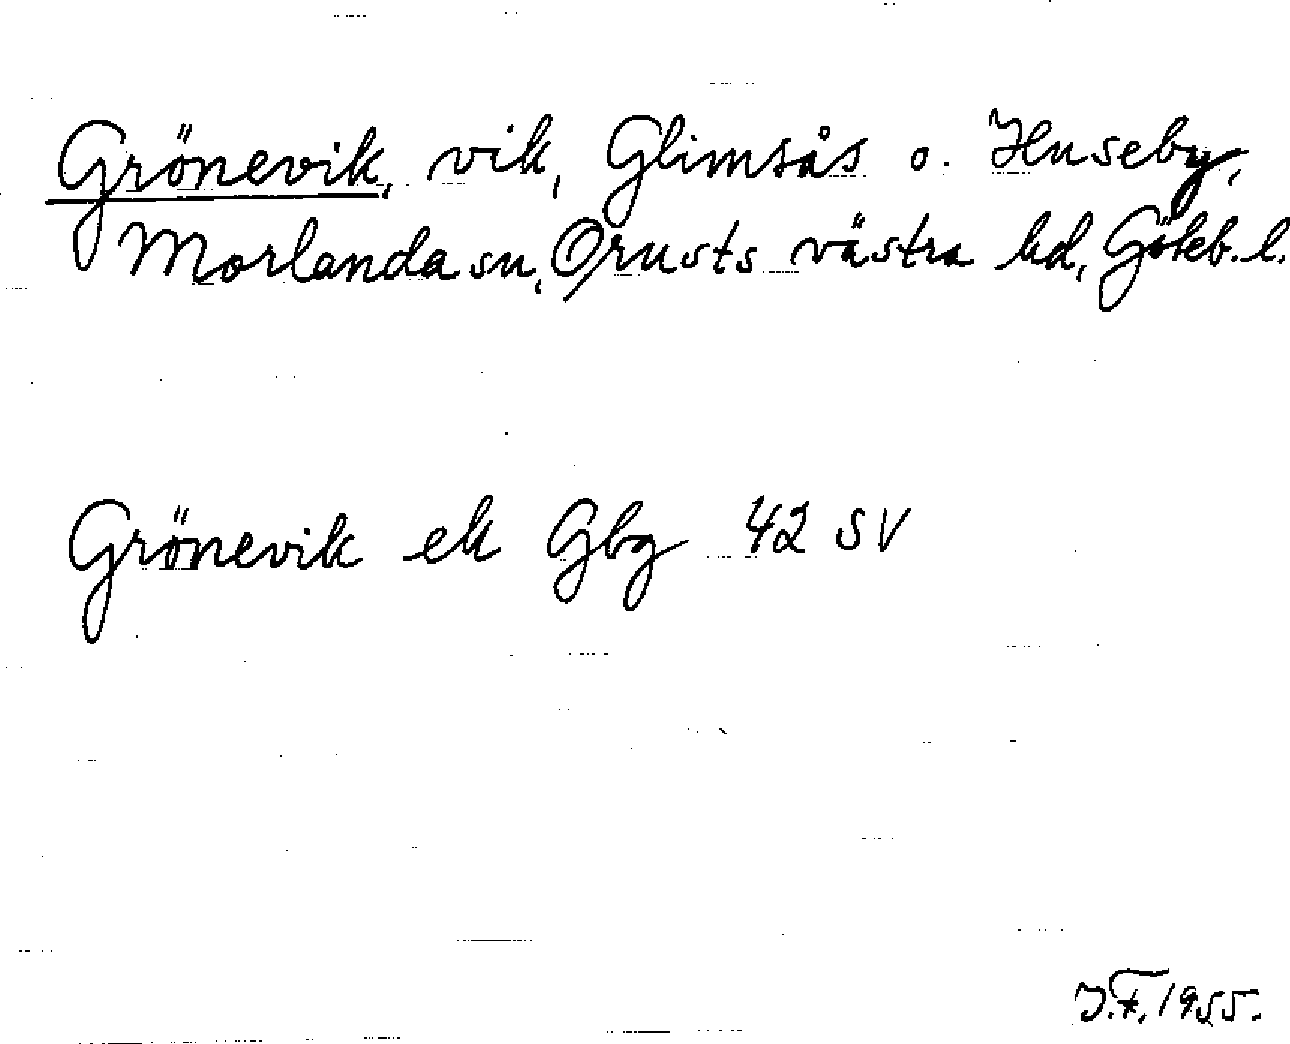 Grönevik, vik, Glimsås o. Huseby,
Morlanda sn, Orusts västra hd, Göteb. l.
Grönevik ek Gbg 42 SV
J.F. 1955.